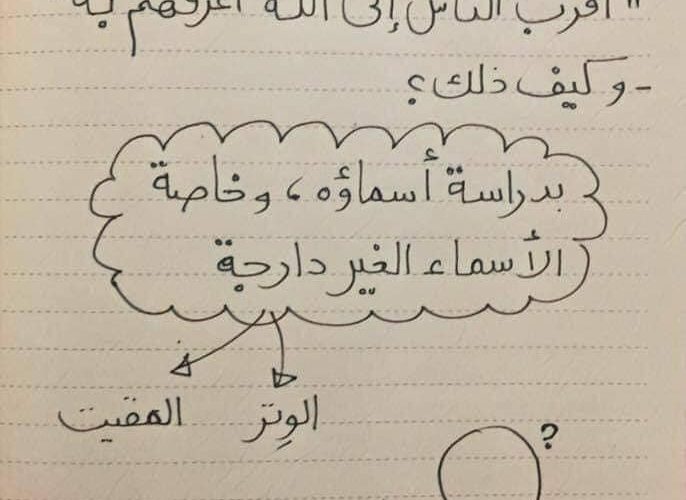 " أقرب الناس إلى الله أعرفهم به
- وكيف ذلك؟
بدراسة أسماؤه، وخاصة
الأسماء الغير دارجة
الوِتر المقيت
?